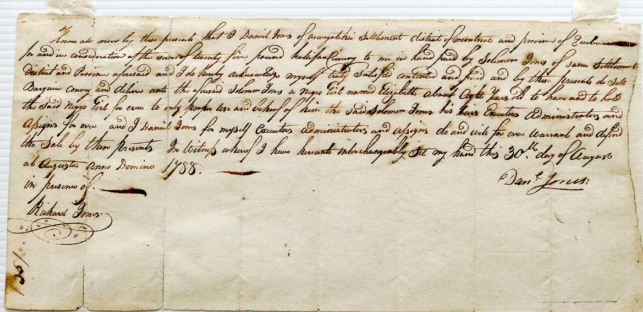 Know all men by these presents that I Daniel Jones of Settlement district of montreal and province of Quebec
for and in consideration of the sum of twenty five pound Halifax Cur to me in hand paid by Solomon Jones of Same Settlement
District and Province aforesaid and I do hereby acknowledge myself fully Satisfied contented and paid and by these presents do Sell
Bargain Convey and deliver unto the aforesaid Solomon Jones a Negro Girl named Elizabeth About Years Old to have and to hold
the Said Negro Girl for ever to only proper use and behoof of him the Said Solomon Jones his heirs Executors Administrators and
Assigns for ever and I Daniel Jones for myself Executors Administrators and Assigns do and will for ever Warrant and defend
the Sale by these Presents In Witness whereof I have hereunto interchangeably Set my hand this 30th day of August
at Augusta Anno Domino 1788.
in presence of
Danl. Jones
Richard Jones